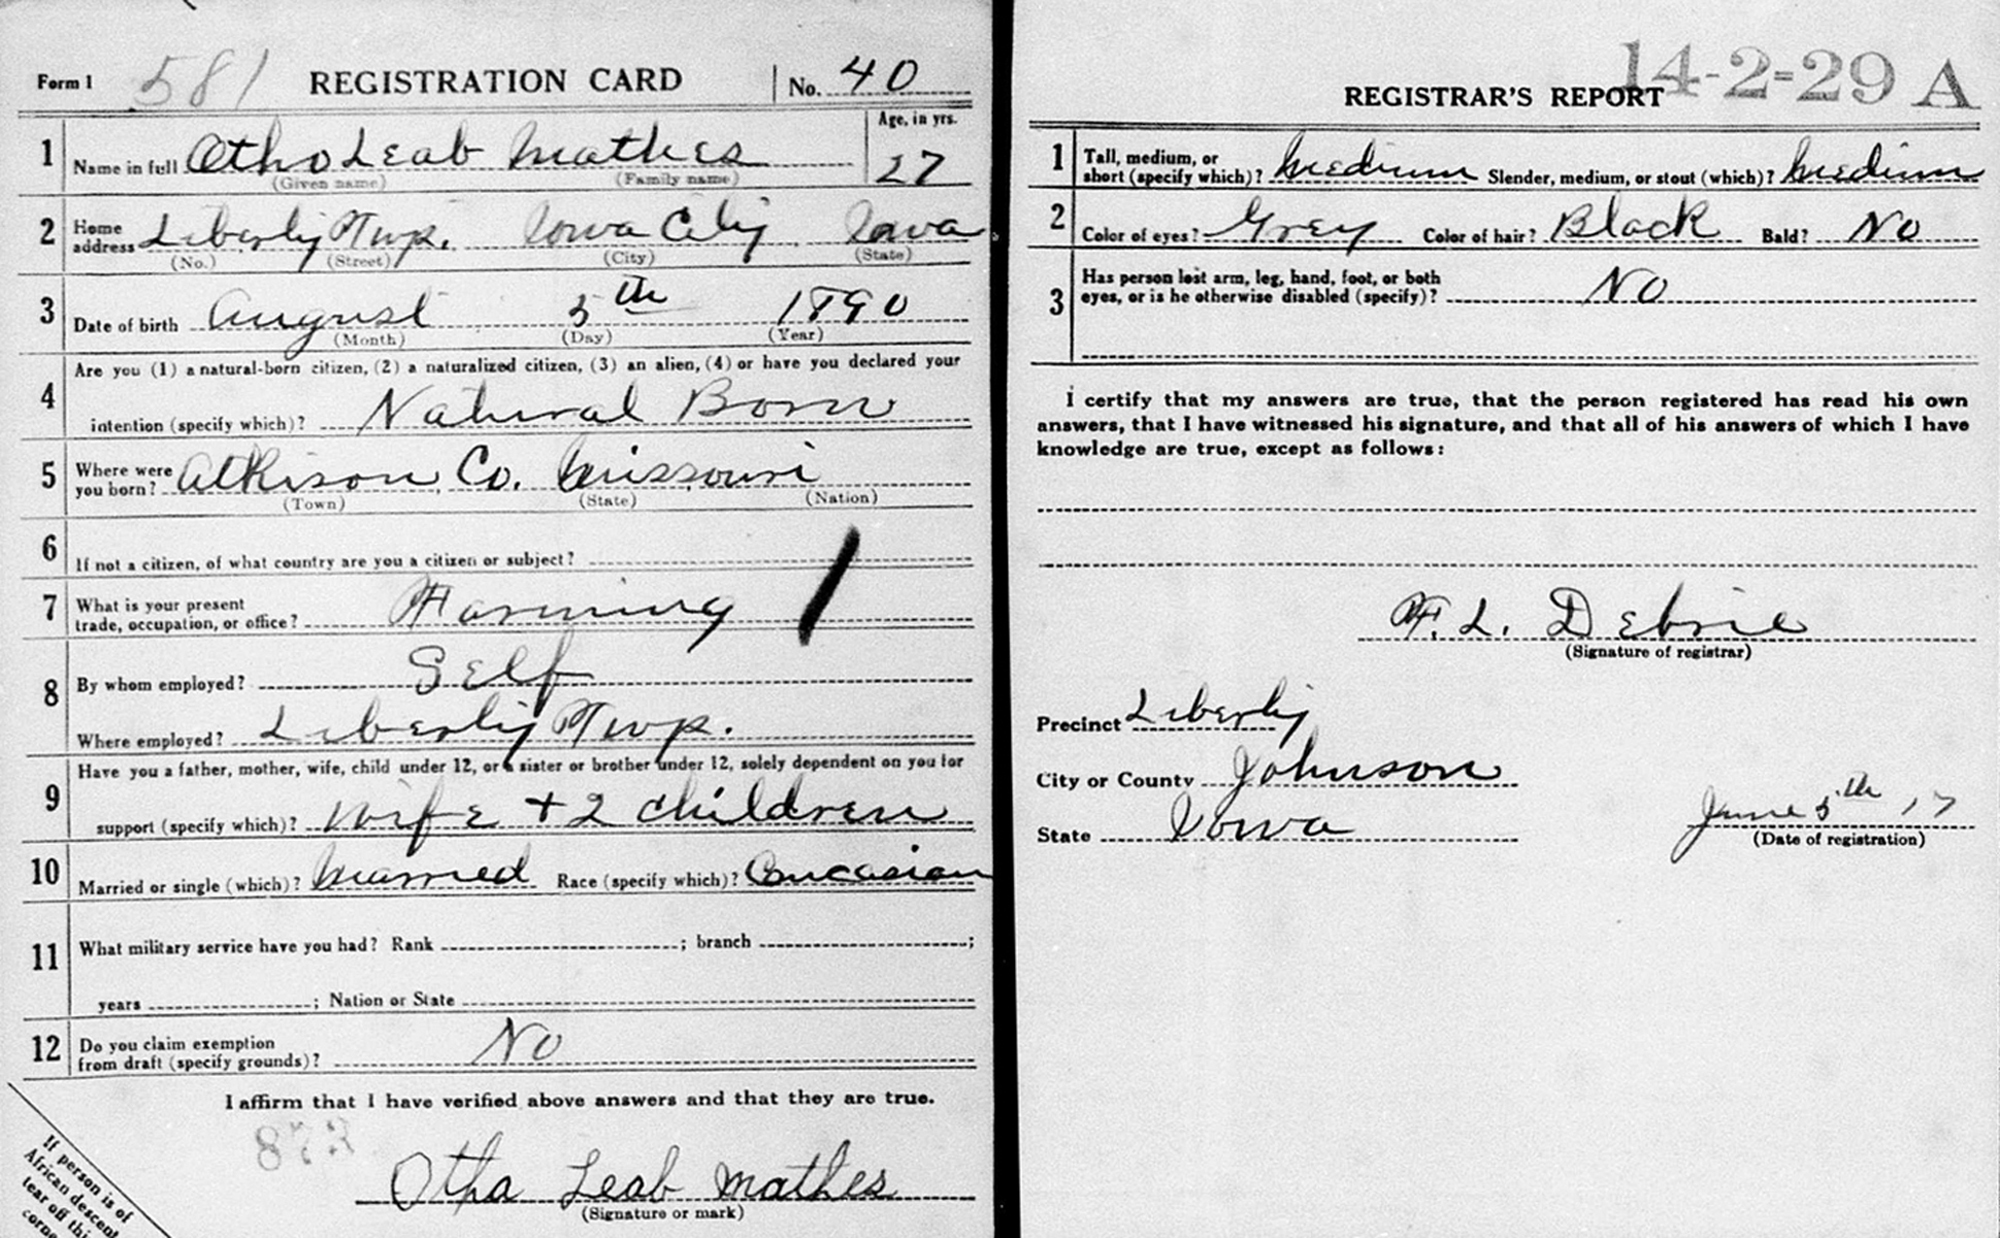 Form 1 581 REGISTRATION CARD No. 40
1 Name in full Otho Leab Mathes Age, in yrs. 27
(Given name) (Family name)
2 Home address Liberty Twp. Iowa City Iowa
(No.) (Street) (City) (State)
3 Date of birth August 5th 1890
(Month) (Day) (Year)
4 Are you (1) a natural-born citizen, (2) a naturalized citizen, (3) an alien, (4) or have you declared your
intention (specify which)? Natural Born
5 Where were you born? Atkison Co. Missouri
(Town) (State) (Nation)
6 If not a citizen, of what country are you a citizen or subject?
7 What is your present
trade, occupation, or office? Farming
8 By whom employed? Self
Where employed? Liberty Twp.
9 Have you a father, mother, wife, child under 12, or a sister or brother under 12, solely dependent on you for
support (specify which)? Wife + 2 children
10 Married or single (which)? Married Race (specify which)? Caucasian
11 What military service have you had? Rank ; branch ;
years ; Nation or State
12 Do you claim exemption
from draft (specify grounds)? No
I affirm that I have verified above answers and that they are true.
873
Otha Leab Mathes
(Signature or mark)
If person is of
African descent
tear off this
corne
14-2-29 A
REGISTRAR'S REPORT
1 Tall, medium, or
short (specify which)? Medium Slender, medium, or stout (which)? Medium
2 Color of eyes? Grey Color of hair? Black Bald? No
3 Has person lost arm, leg, hand, foot, or both
eyes, or is he otherwise disabled (specify)? No
I certify that my answers are true, that the person registered has read his own
answers, that I have witnessed his signature, and that all of his answers of which I have
knowledge are true, except as follows:
F. L. Debrie
(Signature of registrar)
Precinct Liberty
City or County Johnson
State Iowa
June 5th 17
(Date of registration)